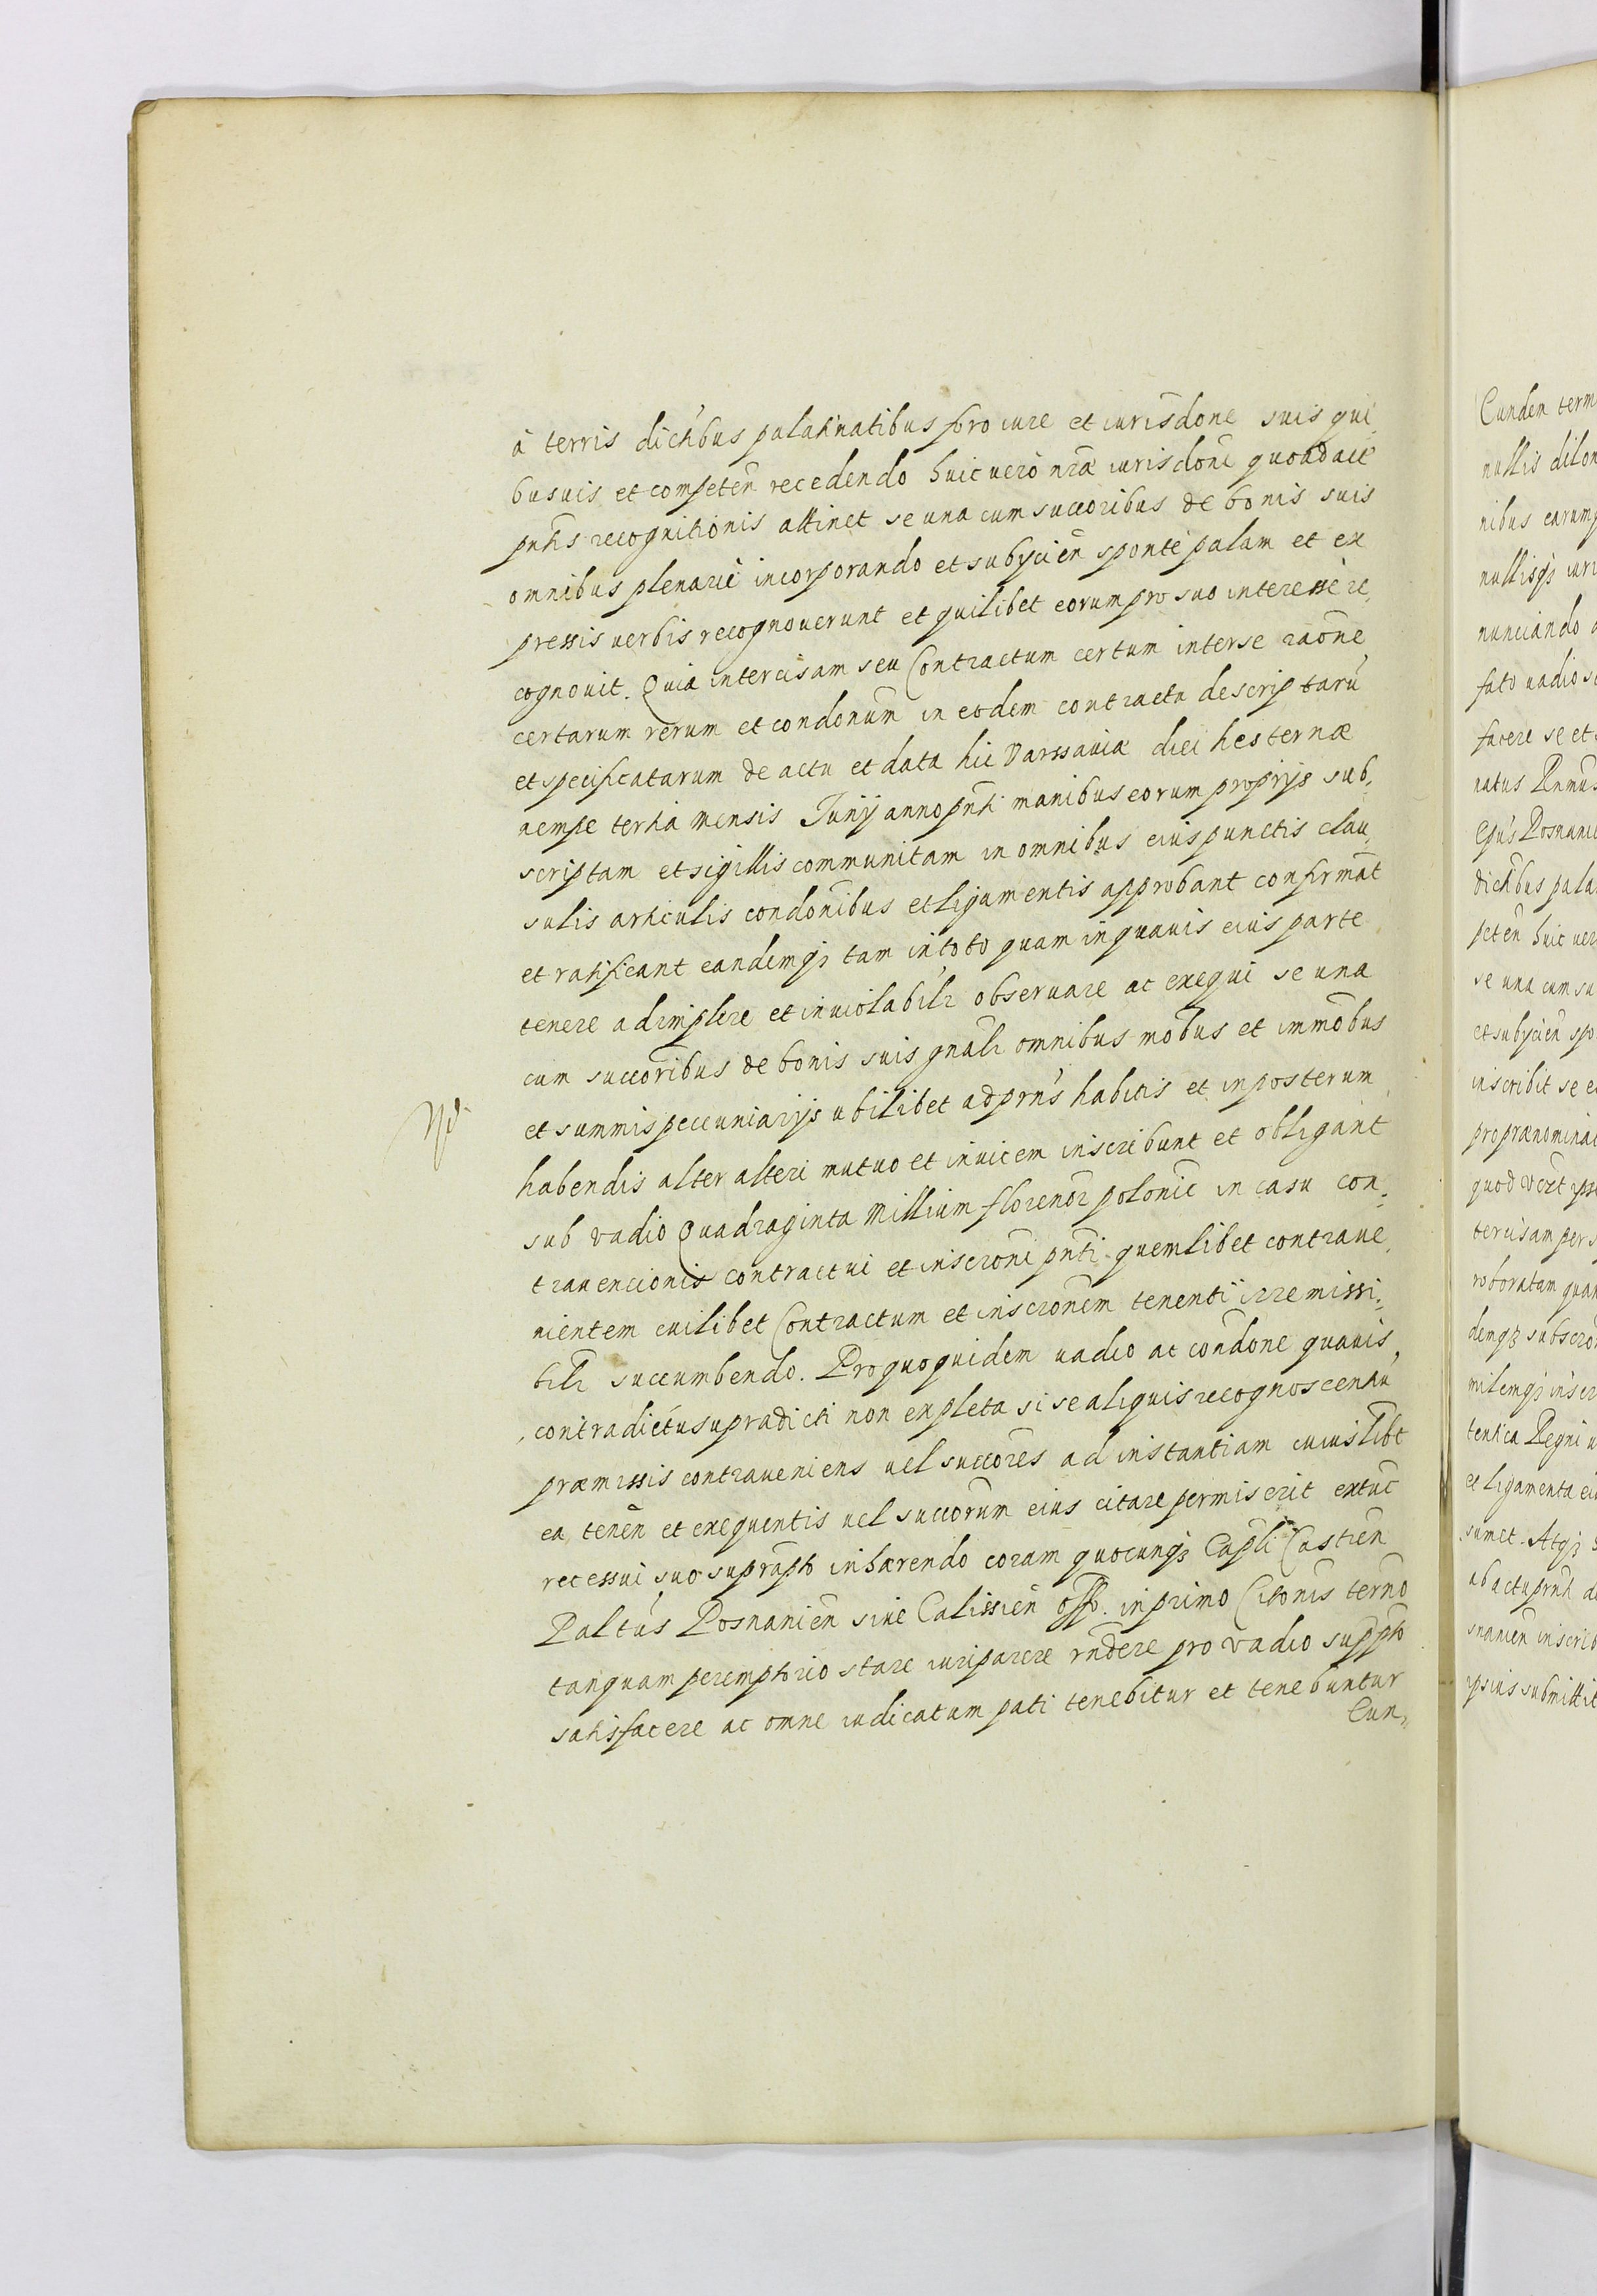 à terris dictibus palatinatibus foro iure et iurisdone suis qui,
busuis et competen̄ recedendo huic uerò nr̄æ iurisdoni quoad actū
pn̄tis recognitionis attinet se una cum succoribus de bonis suis
omnibus plenariè incorporando et subijcien̄ spontè palam et ex
pressis uerbis recognouerunt et quilibet eorum pro suo interesse re,
cognouit. Quia intercisam seu Contractum certum inter se raōne
certarum rerum et condonum in eodem contractu descriptarū
et specificatarum de actu et data hic Varssauiæ diei hesternæ
nempe tertia mensis Junij anno pn̄ti manibus eorum proprijs sub,
scriptam et sigillis communitam in omnibus eius punctis clau,
sulis articulis condonibus et ligamentis approbant confirmāt
et ratificant eandemqȝ tam in toto quam in quauis eius parte
tenere adimplere et inuiolabilr obseruare ac exequi se una
cum succoribus de bonis suis gnālr omnibus mobus et immobus
et summis pecuniarijs ubilibet ad prn̄s habitis et in posterum
habendis alter alteri mutuo et inuicem inscribunt et obligant
sub vadio Quadraginta Millium florenor polonic̄ in casu con,
trauencionis contractui et inscroni pn̄ti quemlibet contraue,
nientem cuilibet Contractum et inscronem tenenti irremissi,
bilr succumbendo. Pro quo quidem uadio ac condone quauis
contractus supradicti non expleta si se aliquis recognoscentiū
præmissis contraueniens uel succores ad instantiam cuiuslibt
ea tenen̄ et exequentis uel succorum eius citare permiserit extūc
recessui suo suprapto inhærendo coram quocunqȝ Capli Castren̄
Paltus Posnanien̄ siue Calissien̄ offo. in primo Citonis termo
tanquam peremptorio stare iuri parere rn̄dere pro vadio suppto
satisfacere ac omne iudicatum pati tenebitur et tenebuntur
Eun,
Cunden term
nullis dilon
nibus earumq
nullisqȝ iuri
nunciando
fato uadio
facere se et
natus Rnmus
Epus Posnani
dictibus pala
peten̄ huic uer
se una cum su
et subijcien̄ spo
inscribit se e
pro prænomina
quod vert ips
tercisam per
roboratam quam
demqȝ subscro
militemqȝ inscr
tentica Regni
et ligamenta ei
sumet. Atqȝ
ab actu prnti
snanien̄ inscrib
ipsius submittit